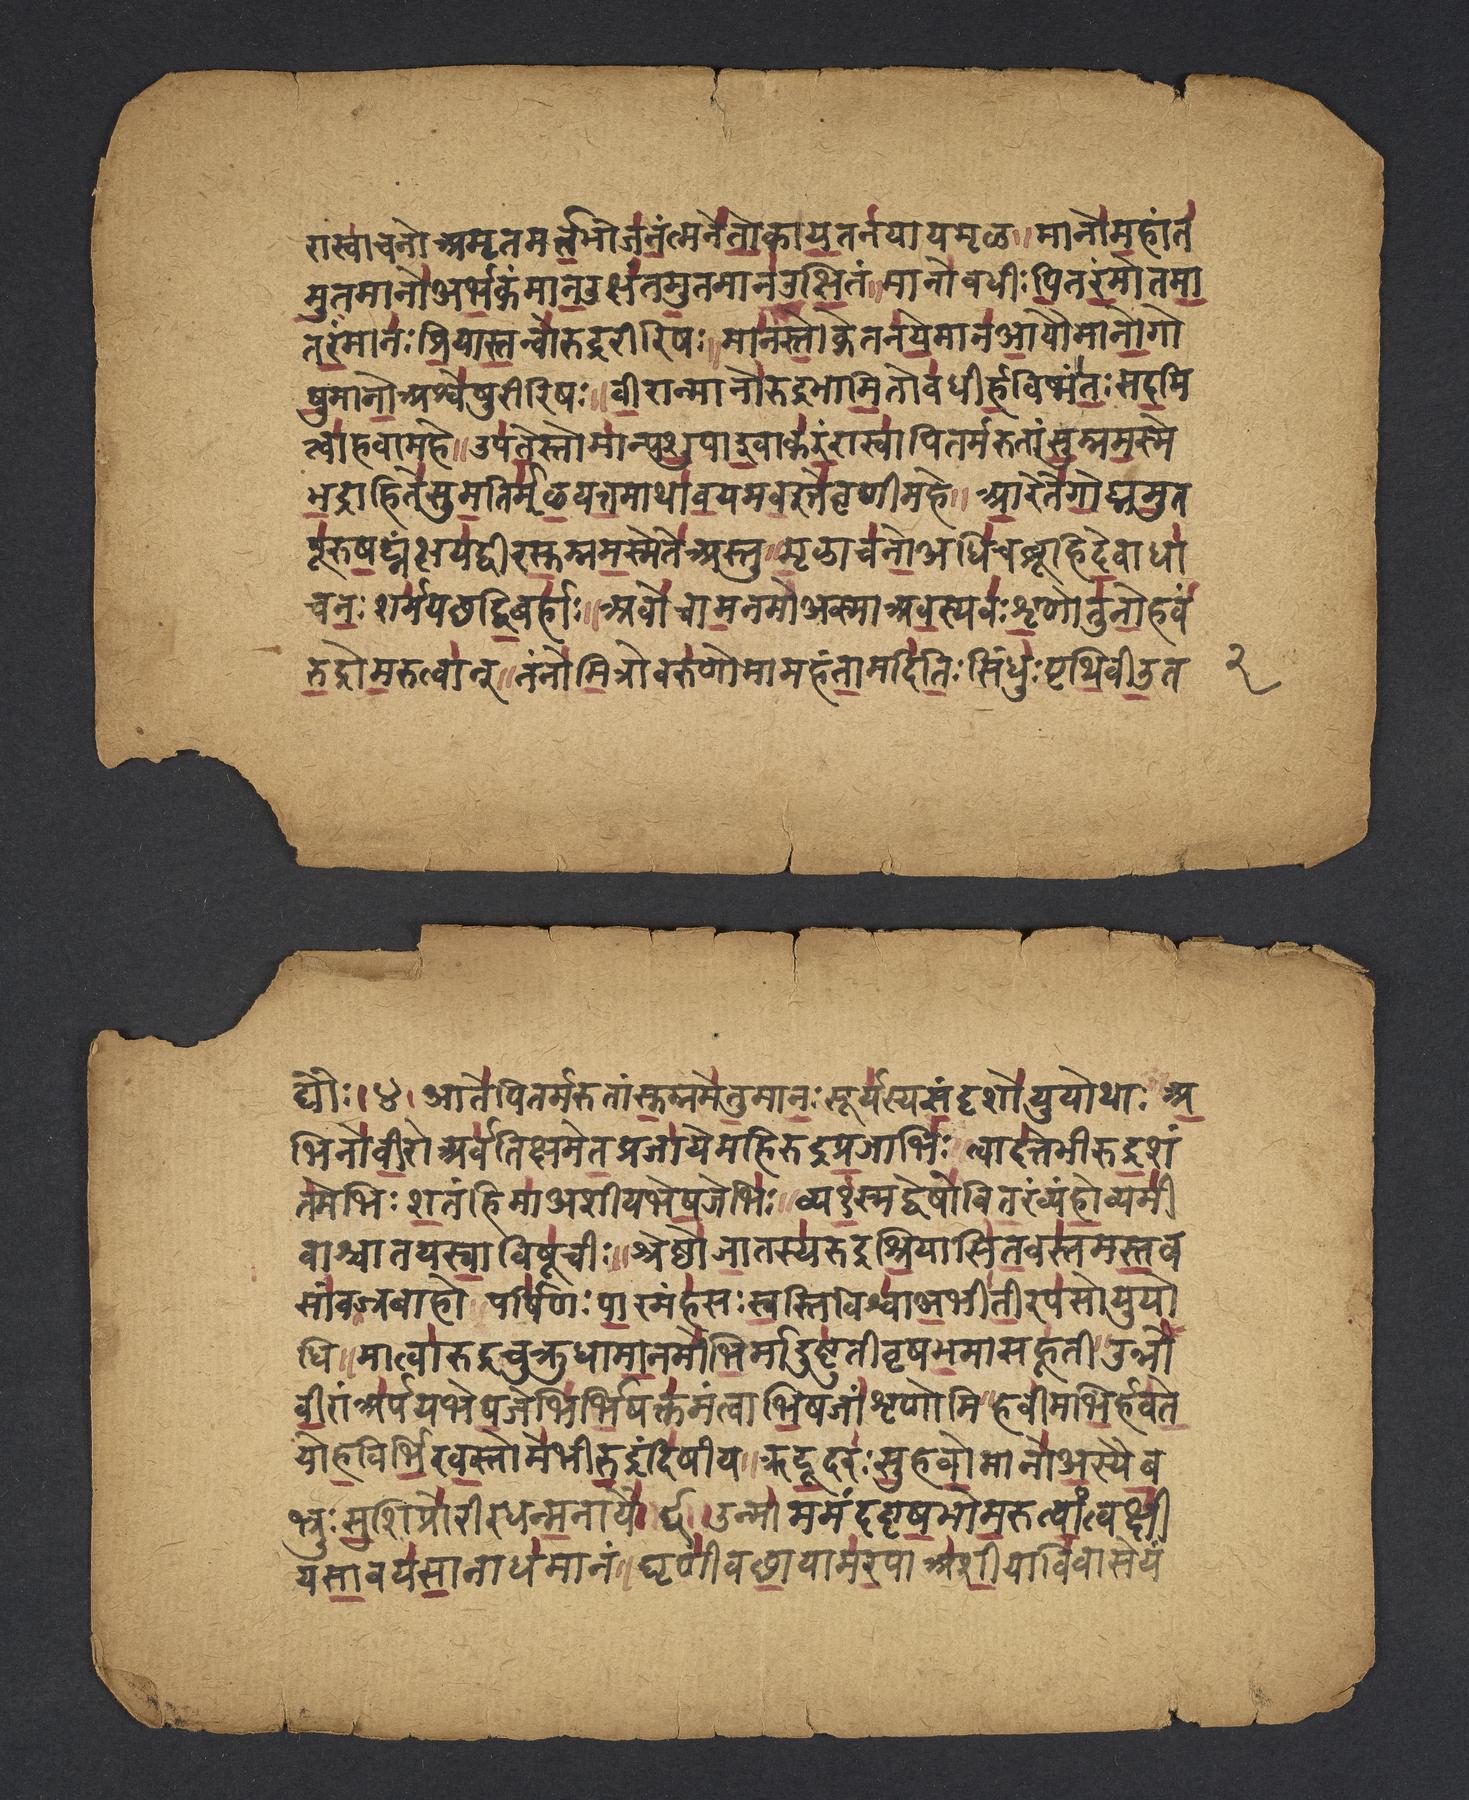 रास्वाचनोअमृतमर्तभोजनंत्मनेतोकायतनयायमृळ॥मानोमहांत
मुतमानोअर्भकंमानउक्षंतमुतमानउक्षितं॥मानोवधीःपितरंमोतमा
तरंमानःप्रियास्तन्वोरुद्ररीरिषः॥मानस्तोकेतनयेमानआयौमानोगो
षुमानोअश्वेषुरीरिषः॥वीरान्मानोरुद्रभामितोवधीर्हविष्मंतःसदमि
त्वाहवामहे॥उपतेस्तोमान्पशुपाइवाकरंरास्वापितर्मरुतांसुम्नमस्मे
भद्राहितेसुमतिर्मृळयत्तमाथावयमवइत्तेवृणीमहे॥आरेतेगोघ्नमुत
पूरुषघ्नंक्षयद्वीरसुम्नमस्मेतेअस्तु॥मृळाचनोअधिचब्रूहिदेवाधा
चनःशर्मयछद्विबर्हाः॥अवोचामनमोअस्माअवस्यवःशृणोतुनोहवं
रुद्रोमरुत्वान्॥तंनोमित्रोवरुणोमामहंतामदितिःसिंधुःपृथिवीउत
२
द्यौः।४।आतेपितर्मरुतांसुम्नमेतुमानःसूर्यस्यसंदृशोयुयोथाःअ
भिनोवीरोअर्वतिक्षमेतप्रजायेमहिरुद्रप्रजाभिः॥त्वादत्तेभीरुद्रशं
तमेभिःशतंहिमाअशीयभेषजेभिः॥व्य१स्मद्द्वेषोवितरंव्यंहोव्यमी
वाश्चातयस्वाविषूचीः॥श्रेष्ठोजातस्यरुद्रश्रियासितवस्तमस्तव
सांवज्रबाहो॥पर्षिणःपारमंहसःस्वस्तिविश्वाअभीतीरपसोयुयो
धि॥मात्वारुद्रचुक्रुधामानमोभिर्मादुष्टुतीवृषभमासहूती॥उन्नो
वीराँअर्पयभेषजेभिर्भिषक्तमंत्वाभिषजांशृणोमि॥हवीमभिर्हवते
योहविर्भिरवस्तोमेभीरुद्रंदिषीय॥ऋदूदरःसुहवोमानोअस्यैब
भ्रुःसुशिप्रोरीरधन्मनायै॥उन्माममंदवृषभोमरुत्वांत्वक्षी
यसावयसानाधमानं॥घृणीवछायामरपाअशीयाविवासेयं